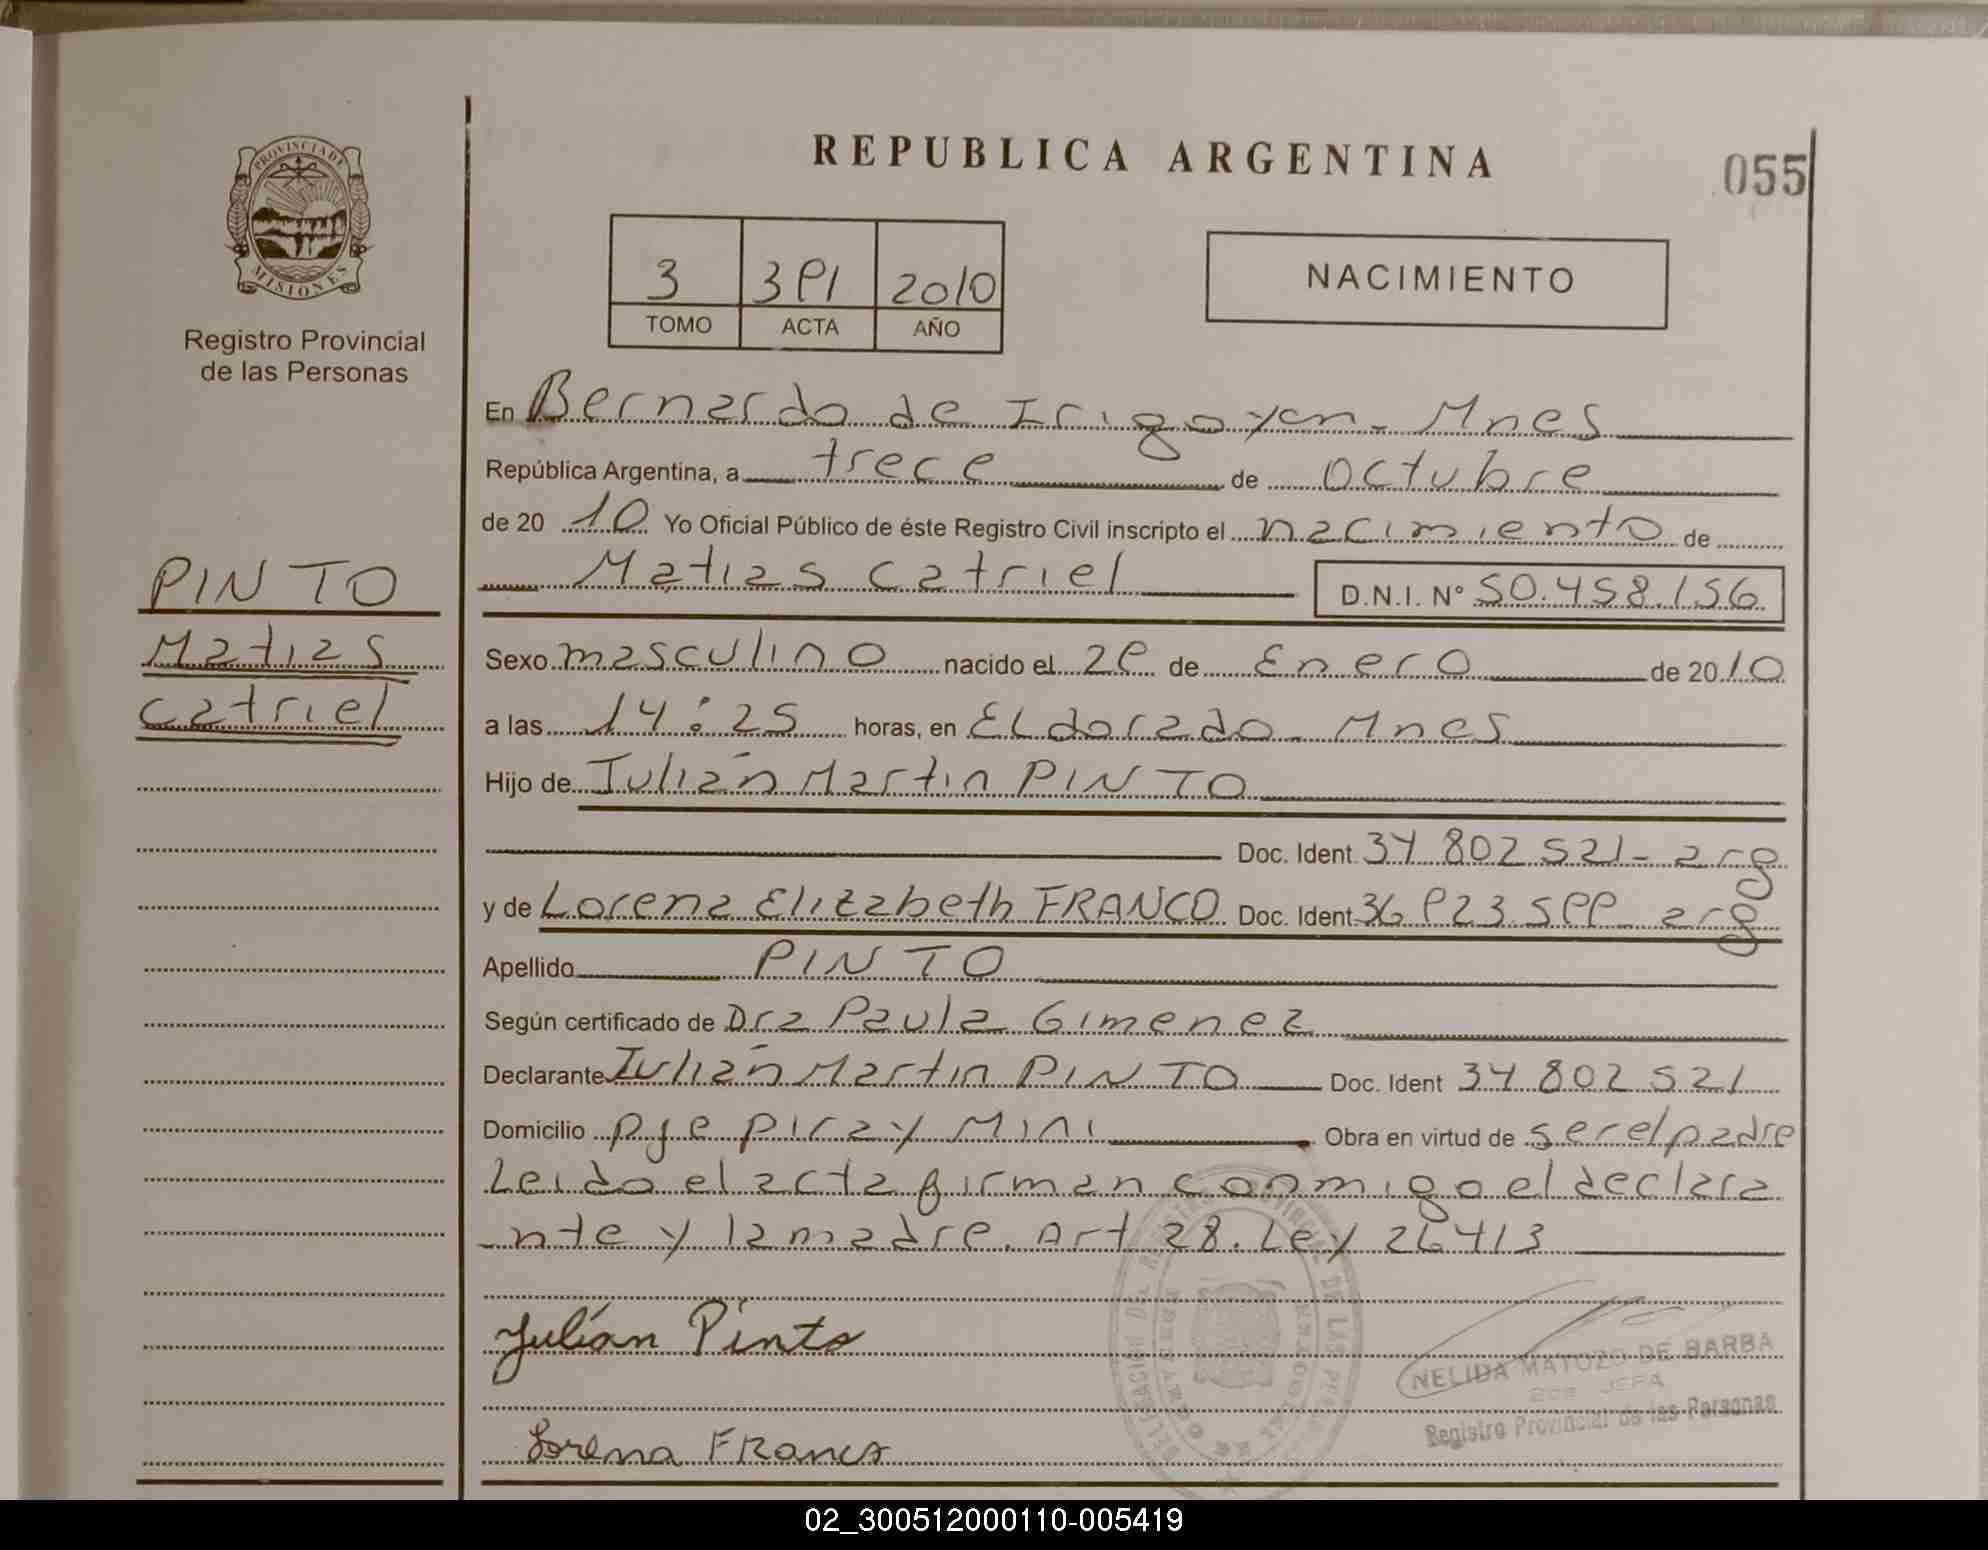 REPUBLICA ARGENTINA
055
PROVINCIA DE
MISIONES
Registro Provincial
de las Personas
3 391 2010
TOMO ACTA AÑO
NACIMIENTO
En Bernardo de Irigoyen - Mnes
República Argentina, a trece de octubre
de 20 10 Yo Oficial Público de éste Registro Civil inscripto el nacimiento de
Matias Catriel D.N.I. N° 50.458.156
PINTO
Matias
Catriel
Sexo masculino nacido el 29 de Enero de 2010
a las 14:25 horas, en Eldorado - Mnes
Hijo de Julián Martin PINTO
Doc. Ident. 34 802 521 - arg
y de Lorena Elizabeth FRANCO Doc. Ident. 36 923 599 arg
Apellido PINTO
Según certificado de Dra Paula Gimenez
Declarante Julián Martin PINTO Doc. Ident 34 802 521
Domicilio pje piray Mini Obra en virtud de ser el padre
Leido el acta firman conmigo el declara
-nte y la madre. Art 28. Ley 26413
Julián Pinto
Lorena FRanco
NELIDA MATOZO DE BARBA
JEFA
Registro Provincial de las Personas
02_300512000110-005419